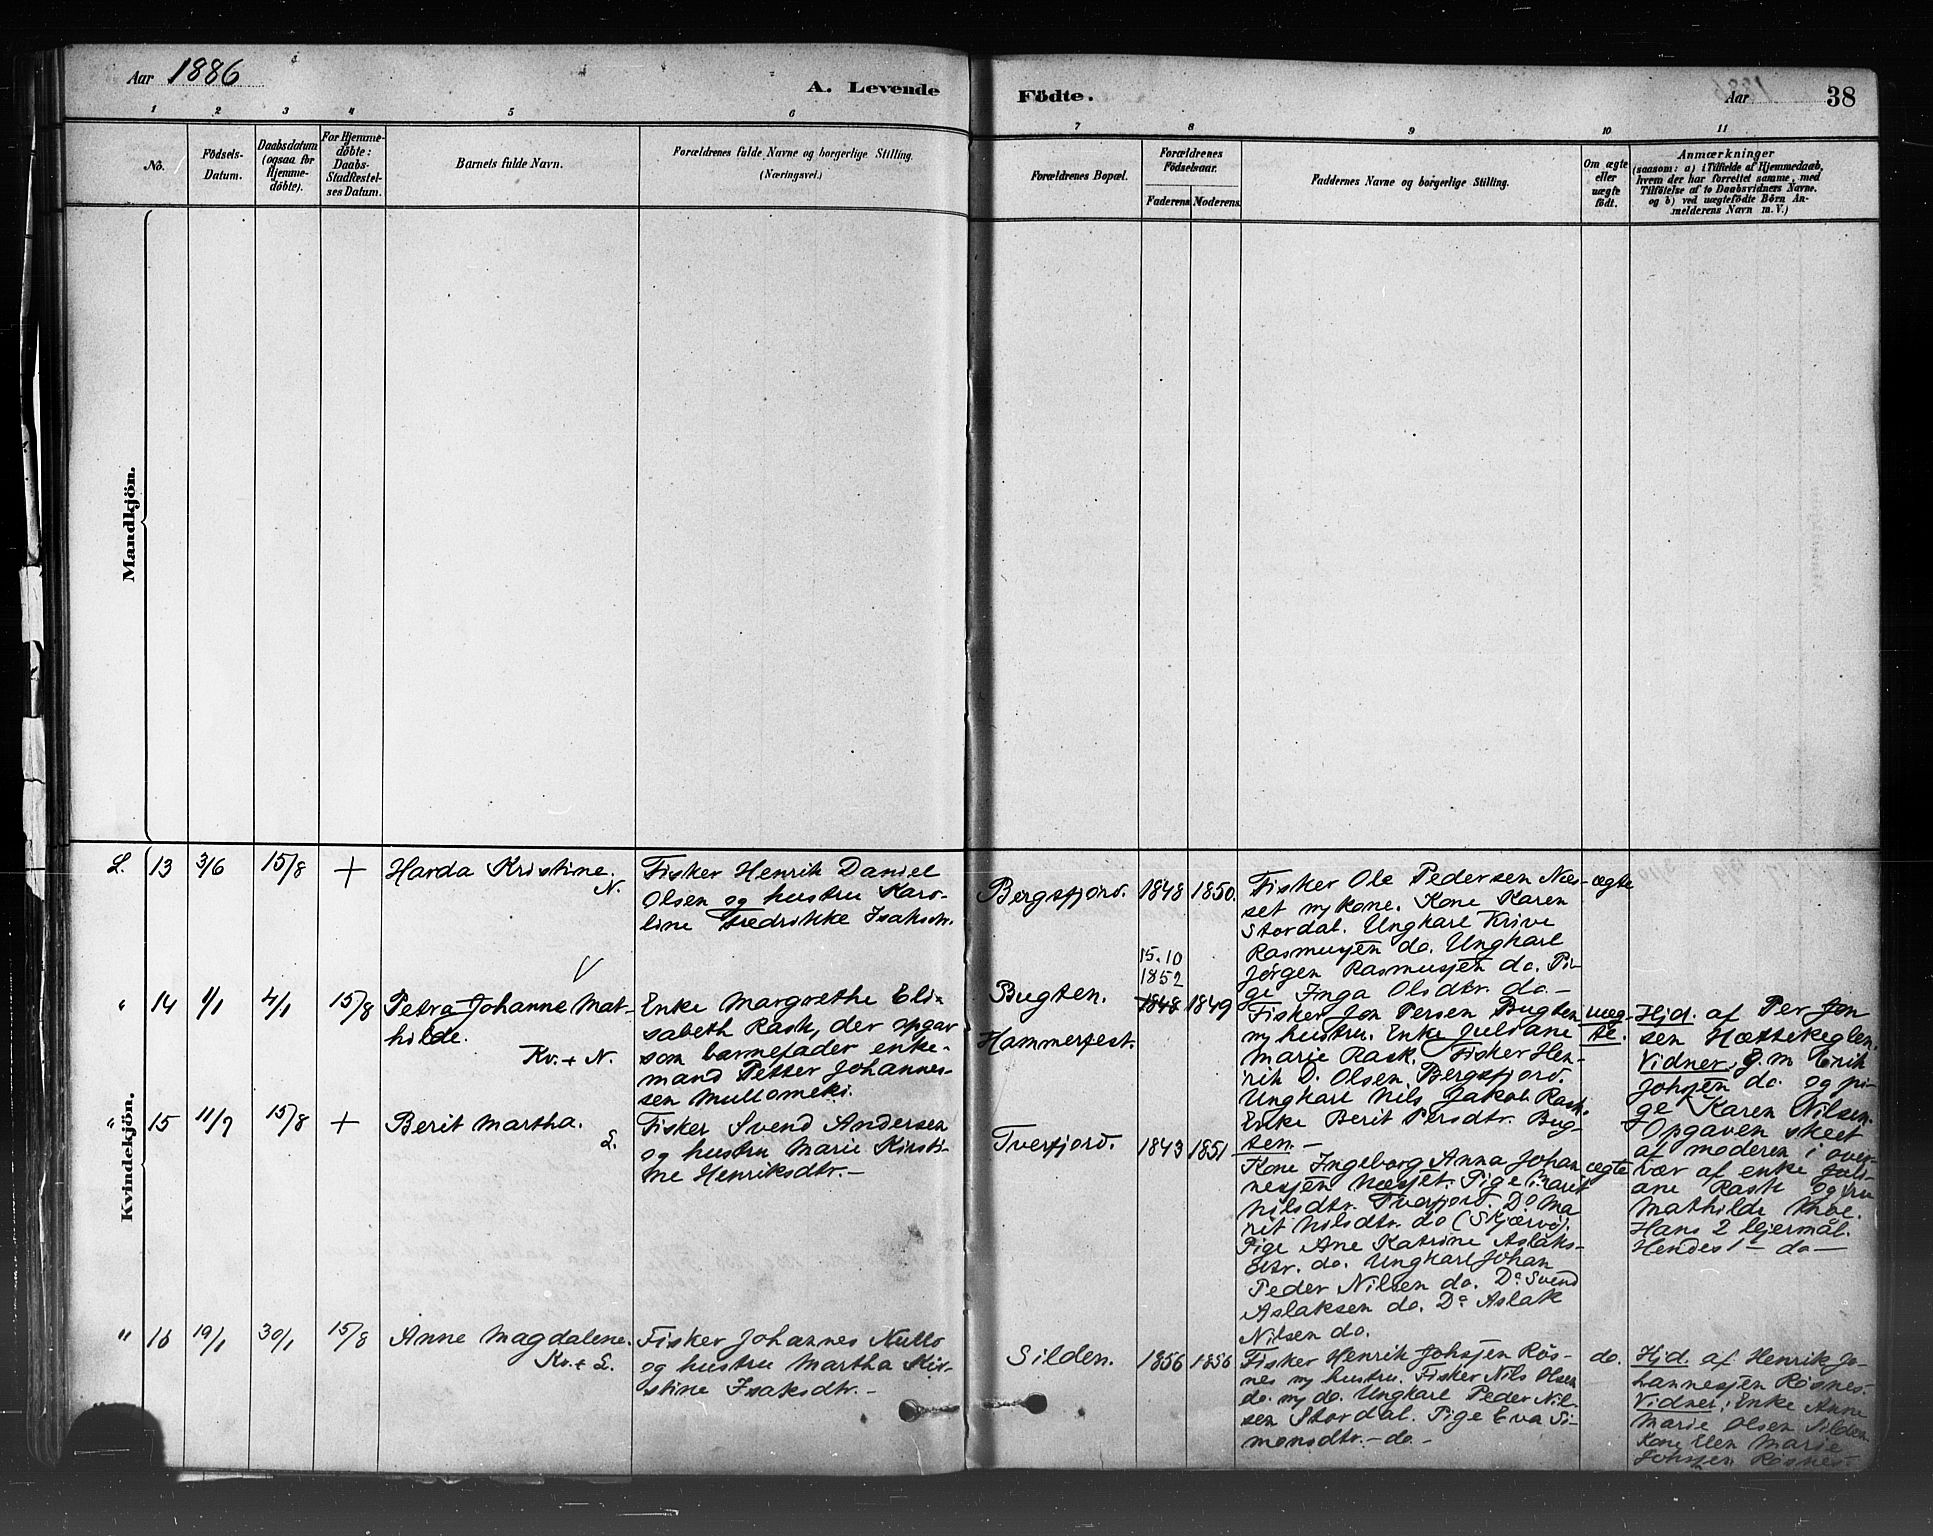 Aar 1886
A. Levende Födte.
Aar 38
1 2 3 4 5 6 7 8 9 10 11
No.
Födsels-
Datum.
Daabsdatum
(ogsaa for
Hjemme-
døbte).
For Hjemme-
døbte:
Daabs-
Stadfæstel-
ses Datum.
Barnets fulde Navn.
Forældrenes fulde Navne og borgerlige Stilling.
(Næringsvei.)
Forældrenes Bopæl.
Forældrenes
Födselsaar.
Faderens Moderens
Faddernes Navne og borgerlige Stilling.
Om ægte
eller
uægte
født.
Anmærkninger
(saasom: a) i Tilfælde af Hjemmedaab,
hvem der har forrettet samme, med
Tilföielse af to Daabsvidners Navne.
og b) ved uægtefödte Börn An-
melderens Navn m.V.)
Mandkjön.
Kvindekjön.
L. 13 3/6 15/8 + Harda Kristine.
N.
Fisker Henrik Daniel
Olsen og hustru Karo-
line Fredrikke Isaksdtr.
Bergsfjord. 1848 1850.
Fisker Ole Pedersen Næs-
set m/kone. Kone Karen
Stordal. Ungkarl Krive
Rasmussen do. Ungkarl
Jørgen Rasmussen do. Pi-
ge Inga Olsdtr. do. –
ægte
" 14 1/1 4/1 15/8 Petra Johanne Mat-
hilde.
Kv. + N.
Enke Margrethe Eli-
sabeth Rask, der opgav
som barnefader enke-
mand Petter Johannes-
sen Mullomeki.
Bugten.
Hammerfest.
15.10
1852
1848 1849
Fisker Jon Persen Bugten
m/hustru. Enke Juliane
Marie Rask. Fisker Hen-
rik D. Olsen, Bergsfjord.
Ungkarl Nils Jakob. Rask.
Enke Berit Persdtr. Bug-
ten. –
uæg-
te.
Hjd. af Per Jon
sen Hættekeglen.
Vidner, g.m Erik
Johsen do. og pi-
ge Karen Nilsen.
Opgaven skeet
af moderen i over-
vær af enke Juli-
ane Rask og fru
Mathilde Moe.
Hans 2 leiermål.
Hendes 1 – do –
" 15 11/7 15/8 + Berit Martha.
L.
Fisker Svend Andersen
og hustru Marie Kirsti-
ne Henriksdtr. –
Tverfjord. 1843 1851
Kone Ingeborg Anna Johan
nessen Næsset. Pige Marit
Nilsdtr. Tverfjord. Do Ma
rit Nilsdtr. do (Skjærvö).
Pige Ane Katrine Aslaks-
dtr. do. Ungkarl Johan
Peder Nilsen do. Do Svend
Aslaksen do. Do Aslak
Nilsen do.
ægte
" 16 19/1 30/1 15/8 Anne Magdalene.
Kv. + L.
Fisker Johannes Nullo
og hustru Martha Kir-
stine Isaksdtr. –
Silden. 1856 1856
Fisker Henrik Johsen Rös-
nes m/hustru. Fisker Nils Olsen
do. m/do. Ungkarl Peder Nil-
sen Stordal. Pige Eva Si-
monsdtr. – do –
do.
Hjd. af Henrik Jo-
hannessen Rösnes.
Vidner; Enke Anne
Marie Olsen Silden.
Kone Elen Marie
Johsen Rösnes.